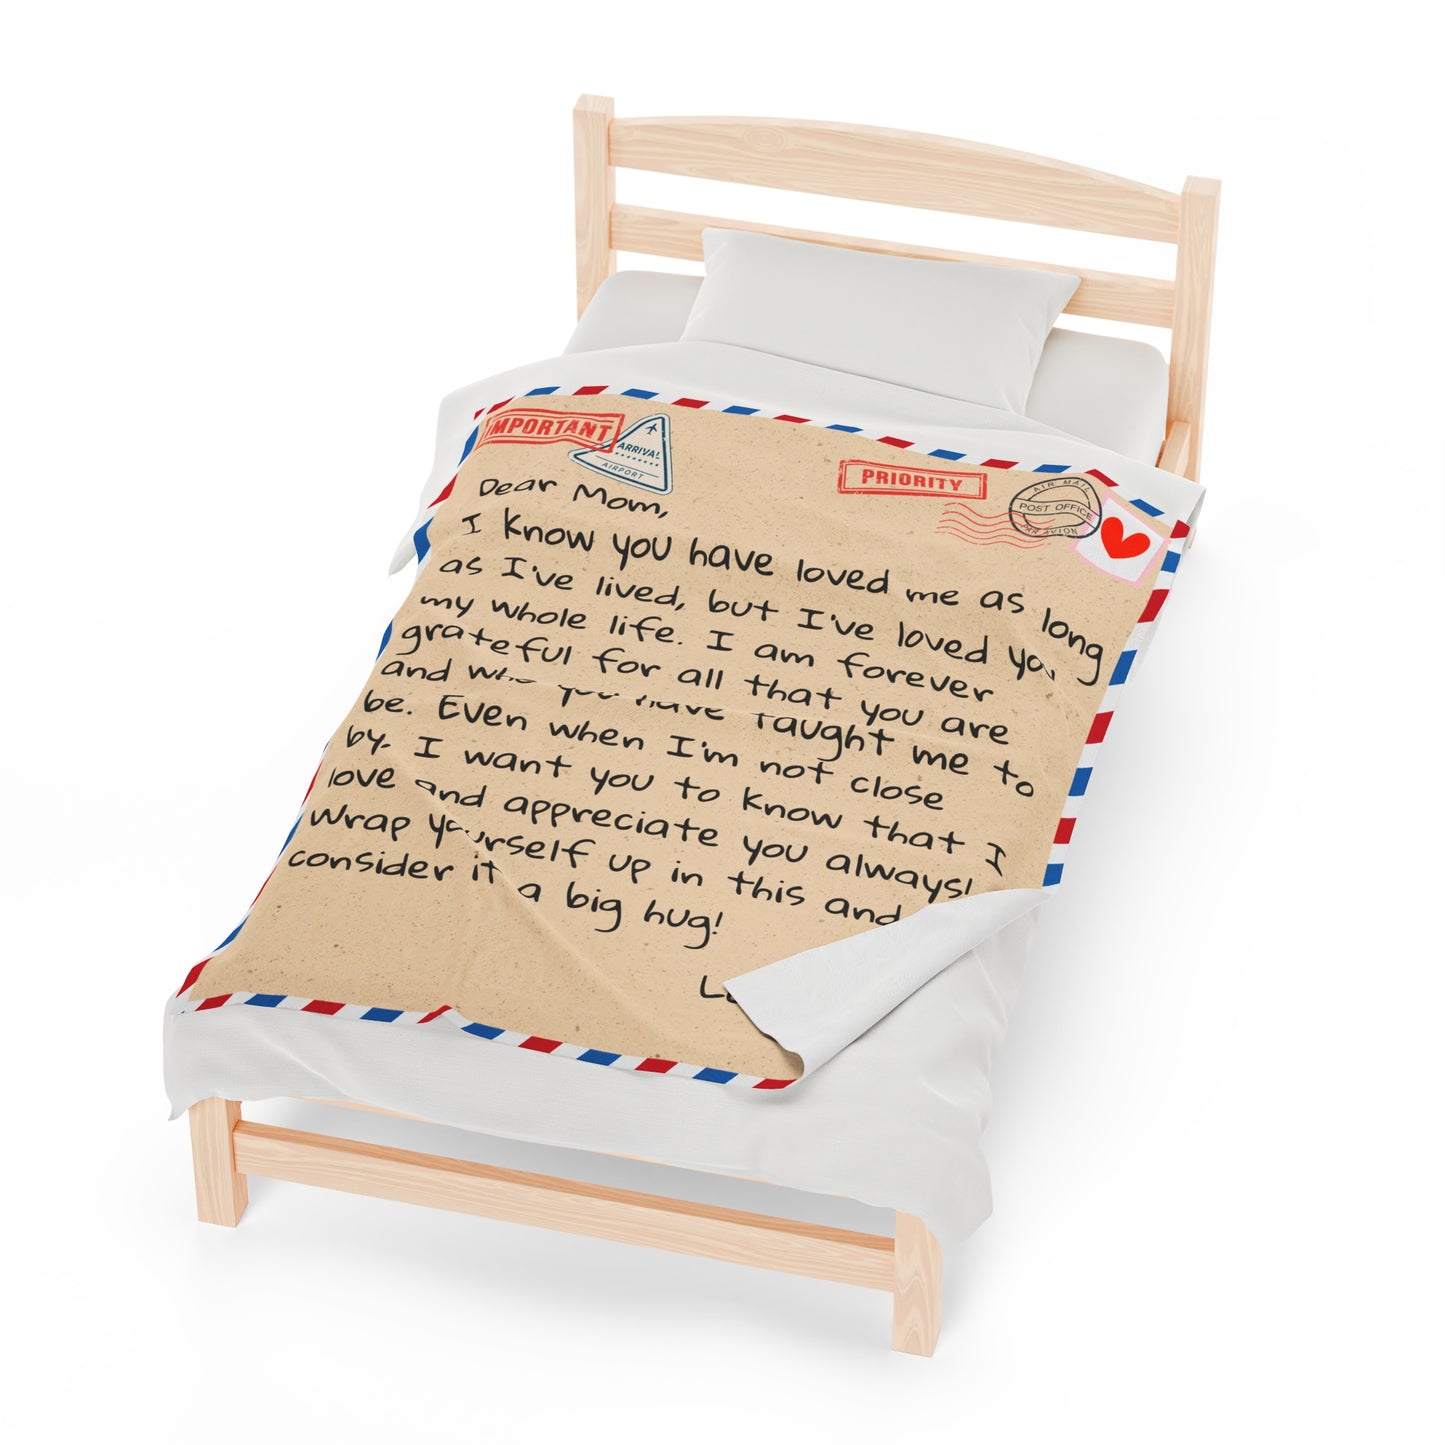 IMPORTANT
ARRIVAL
AIRPORT
PRIORITY
AIR MAIL
POST OFFICE
PAR AVION
Dear Mom,
I know you have loved me as long
as I've lived, but I've loved you
my whole life. I am forever
grateful for all that you are
and who you have taught me to
be. Even when I'm not close
by. I want you to know that I
love and appreciate you always!
Wrap yourself up in this and
consider it a big hug!